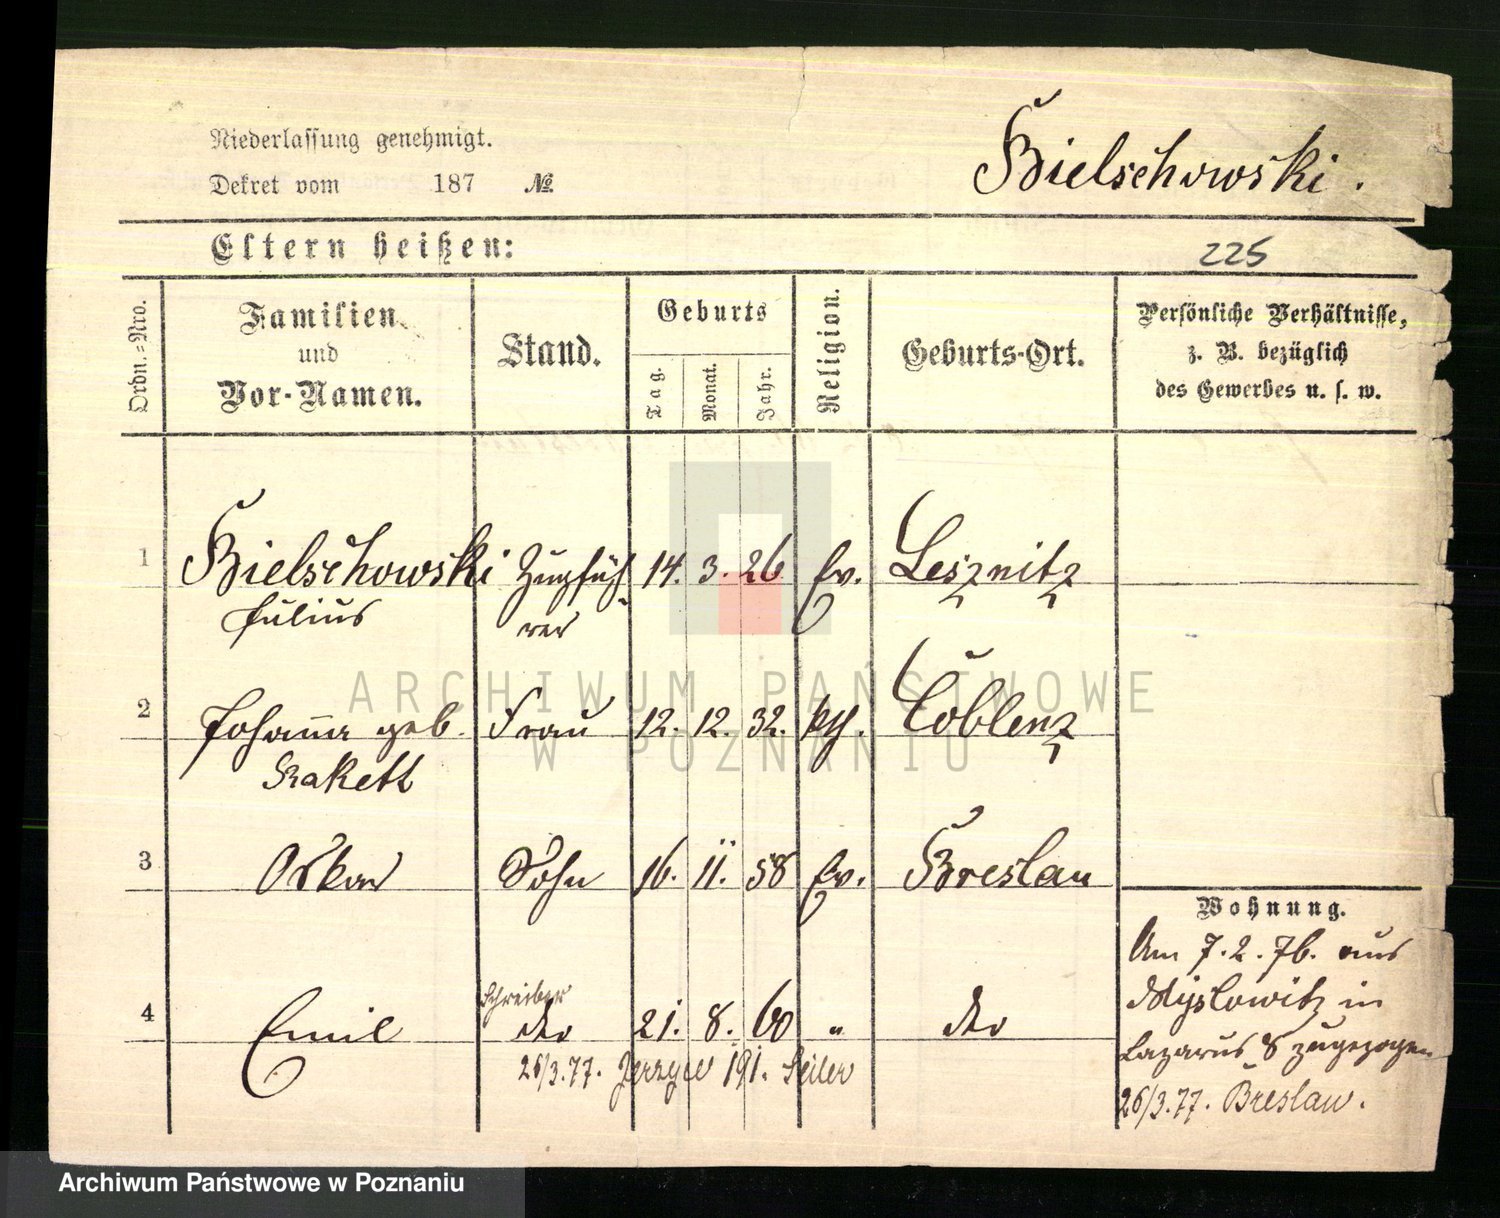 Niederlassung genehmigt.
Dekret vom 187 №
Bielschowski.
Eltern heißen:
225
Ordn.=Nro.
Familien
und
Vor-Namen.
Stand.
Geburts
Tag.
Monat.
Jahr.
Religion.
Geburts-Ort.
Persönliche Verhältnisse,
z. B. bezüglich
des Gewerbes u. s. w.
1 Bielschowski Zugfüh 14. 3. 26 Ev. Lesznitz
Julius rer
ARCHIWUM PAŃSTWOWE
W POZNANIU
2 Johanna geb. Frau 12. 12. 32. kth. Coblenz
Rakett
3 Oskar Sohn 16. 11. 58 Ev. Breslau
Wohnung.
Am 7.2.76. aus
Myslowitz in
Lazarus 8 zugezogen
26/3.77. Breslau.
Schreiber
4 Emil dto 21. 8. 60 " dto
26/3.77. Jerzyce 191. Seiler
Archiwum Państwowe w Poznaniu